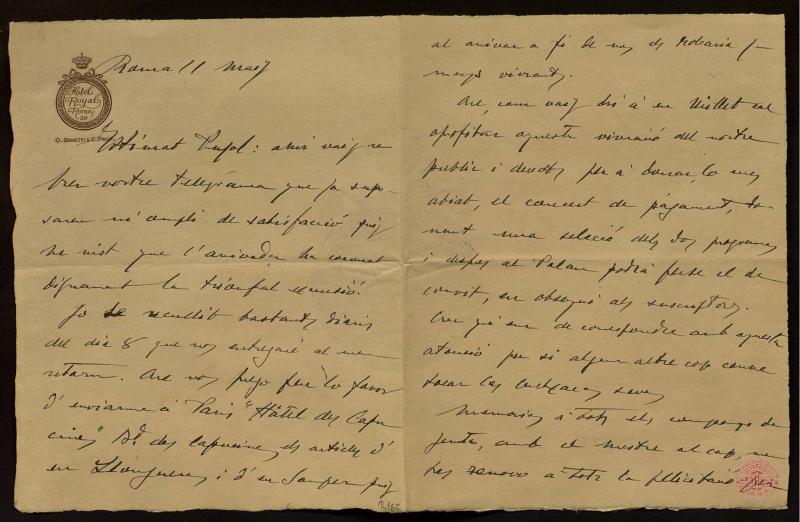 Hotel
Royal
Rome
O. BONETTI & C. PROP.
Roma 11 Maig
Estimat Pujol: ahir vaig re
bre vostre telegrama que ja supo-
sareu m'omplí de satisfacció puig
he vist que l'arrivada ha coronat
dignament la triomfal excursió.
Jo he recullit bastants diaris
del dia 8 que vos entregaré al meu
retorn. Ara vos prego feu lo favor
d'enviarme á Paris "Hôtel des Capu
cines" Bd des Capucines els articles d'
en Llongueras i d'en Sanper puig
al anivar a fi de mes de
menys vivrants.
Are, com vaig dir á en Millet cal
aprofitar aquesta vivració del nostre
public i devots per á donar, lo mes
abiat, el concert de págament, do-
nant una selecció dels dos programes
i despres al Palau podrá ferse el de
convit, en obsequi als suscriptors.
Crec que em de correspondre amb aquesta
atensió per si algun altre cop convé
tocar las seves
Memorias á tots els companys de
junta, amb el mestre al cap,
renovo a tots la felicitació